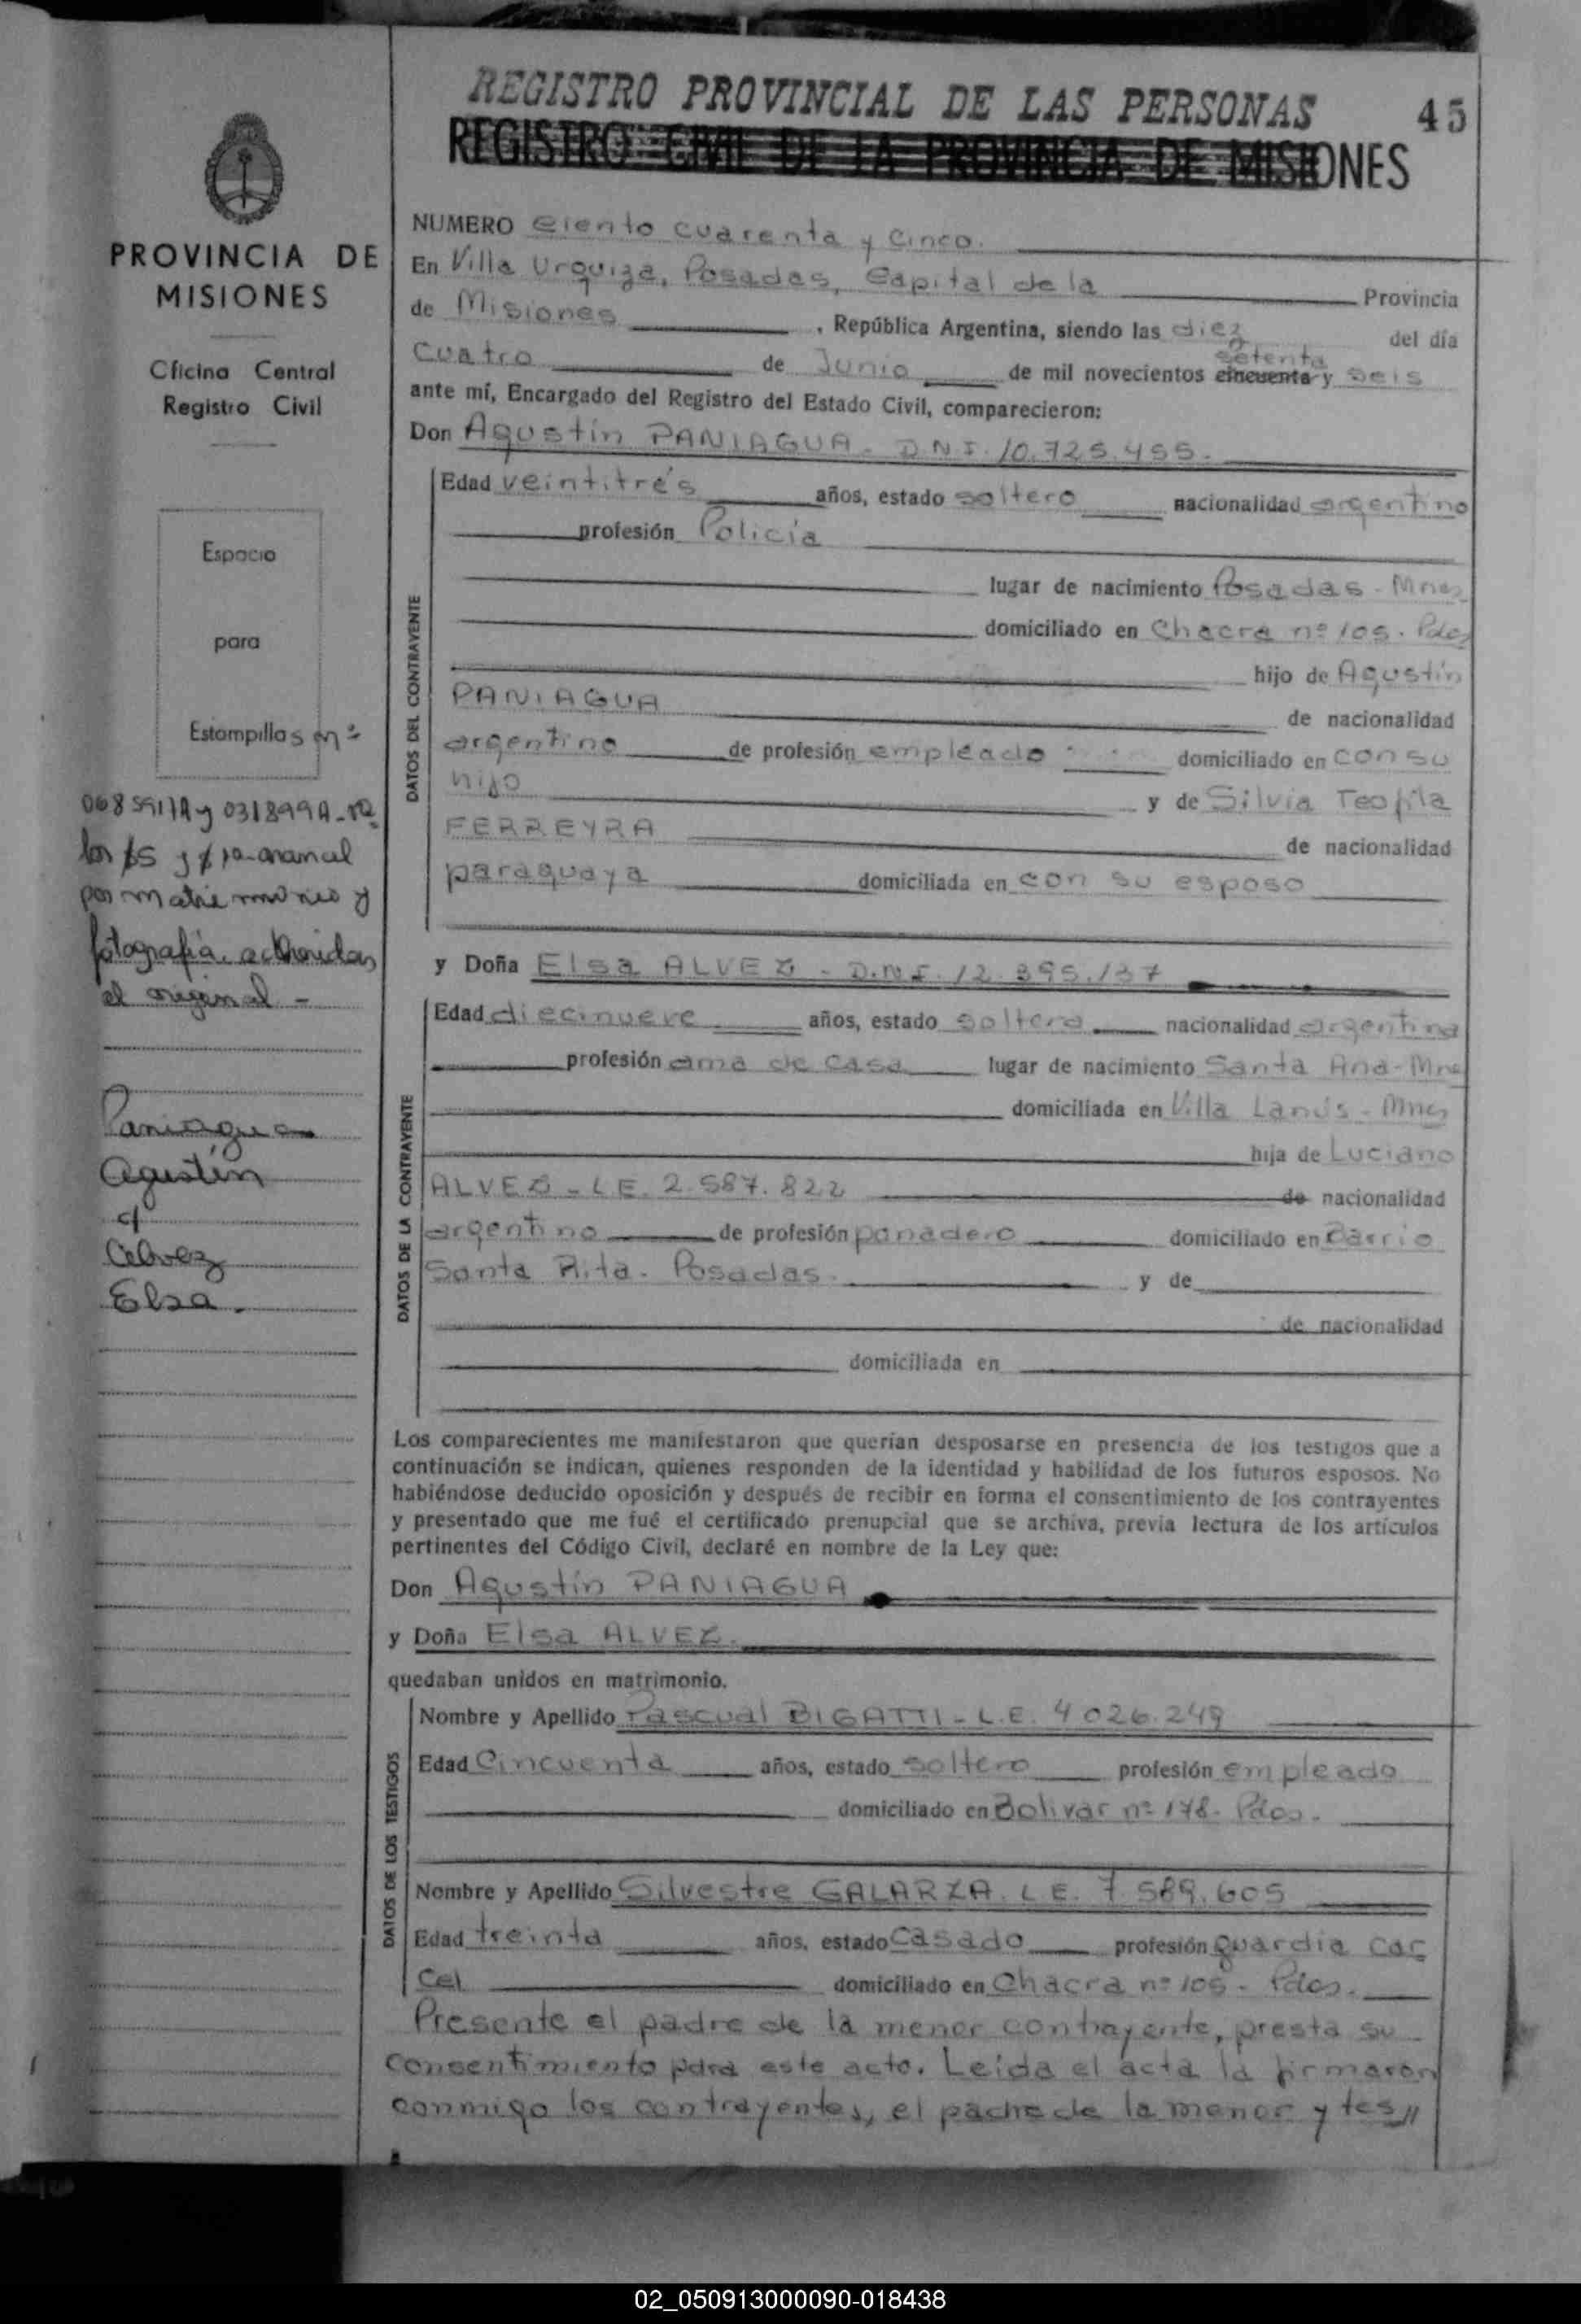 REGISTRO PROVINCIAL DE LAS PERSONAS
45
REGISTRO CIVIL DE LA PROVINCIA DE MISIONES
PROVINCIA DE
MISIONES
Oficina Central
Registro Civil
Espacio
para
Estampillas nº
0685917A y 031899A
los $5 y $
por matrimonio y
fotografía, adheridas
al original -
Paniagua
Agustín
c/
Alvez
Elsa.
NUMERO Ciento cuarenta y cinco.
En Villa Urquiza, Posadas, Capital de la Provincia
de Misiones , República Argentina, siendo las diez del día
cuatro de Junio de mil novecientos cincuenta setenta y seis
ante mí, Encargado del Registro del Estado Civil, comparecieron:
Don Agustín PANIAGUA - D.N.I. 10.725.455.
DATOS DEL CONTRAYENTE
Edad veintitrés años, estado soltero nacionalidad argentino
profesión Policía
lugar de nacimiento Posadas - Mnes
domiciliado en Chacra nº 105. Pdas
hijo de Agustín
PANIAGUA de nacionalidad
argentino de profesión empleado domiciliado en con su
hijo y de Silvia Teofila
FERREYRA de nacionalidad
paraguaya domiciliada en con su esposo
y Doña Elsa ALVEZ - D.N.I. 12.395.137
DATOS DE LA CONTRAYENTE
Edad diecinueve años, estado soltera nacionalidad argentina
profesión ama de casa lugar de nacimiento Santa Ana - Mne
domiciliada en Villa Lanús - Mnes
hija de Luciano
ALVEZ - L.E. 2.587.822 de nacionalidad
argentino de profesión panadero domiciliado en Barrio
Santa Rita. Posadas. y de
de nacionalidad
domiciliada en
Los comparecientes me manifestaron que querían desposarse en presencia de los testigos que a
continuación se indican, quienes responden de la identidad y habilidad de los futuros esposos. No
habiéndose deducido oposición y después de recibir en forma el consentimiento de los contrayentes
y presentado que me fué el certificado prenupcial que se archiva, previa lectura de los artículos
pertinentes del Código Civil, declaré en nombre de la Ley que:
Don Agustín PANIAGUA
y Doña Elsa ALVEZ.
quedaban unidos en matrimonio.
DATOS DE LOS TESTIGOS
Nombre y Apellido Pascual BIGATTI - L.E. 4026.249
Edad Cincuenta años, estado soltero profesión empleado
domiciliado en Bolivar nº 178. Pdas.
Nombre y Apellido Silvestre GALARZA. L.E. 7.589.605
Edad treinta años, estado casado profesión guardia car
cel domiciliado en Chacra nº 105 - Pdas.
Presente el padre de la menor contrayente, presta su
consentimiento para este acto. Leída el acta la firmaron
conmigo los contrayentes, el padre de la menor y tes//
02_050913000090-018438